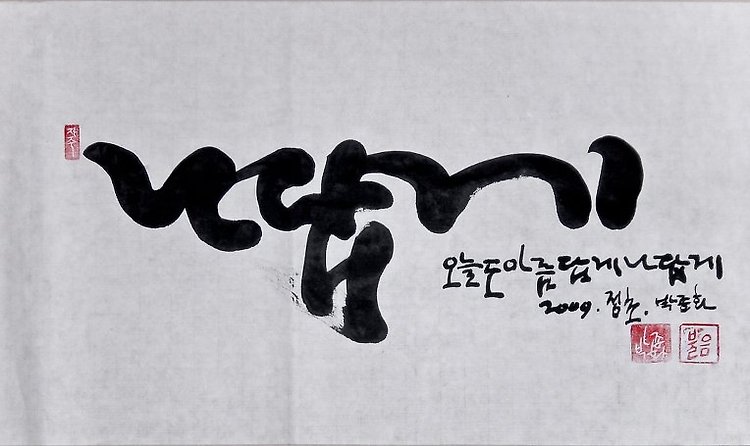 나답게
오늘도 아름답게 나답게
2009. 정초. 박준화